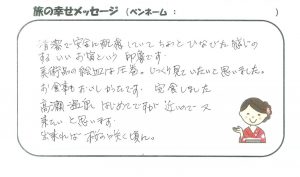 旅の幸せメッセージ（ペンネーム：　　　　　）
清潔で安全に配慮していてちょとひなびた感じの
するいいお宿という印象です。
美術品の絵皿は圧巻。じっくり見ていたいと思いました。
お食事もおいしかったです。完食しました
高湯温泉はじめてですが近いので又
来たいと思います。
出来れば桜の咲く頃に。